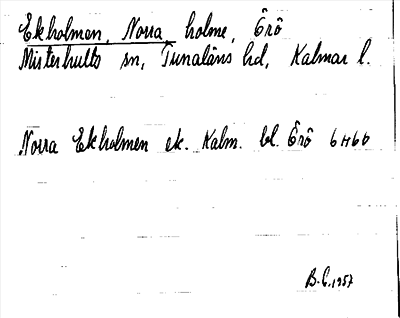 Ekholmen, Norra, holme, Örö
Misterhults sn, Tunaläns hd, Kalmar l.
Norra Ekholmen ek. Kalm. bl. Örö 6H6b
B.C. 1957